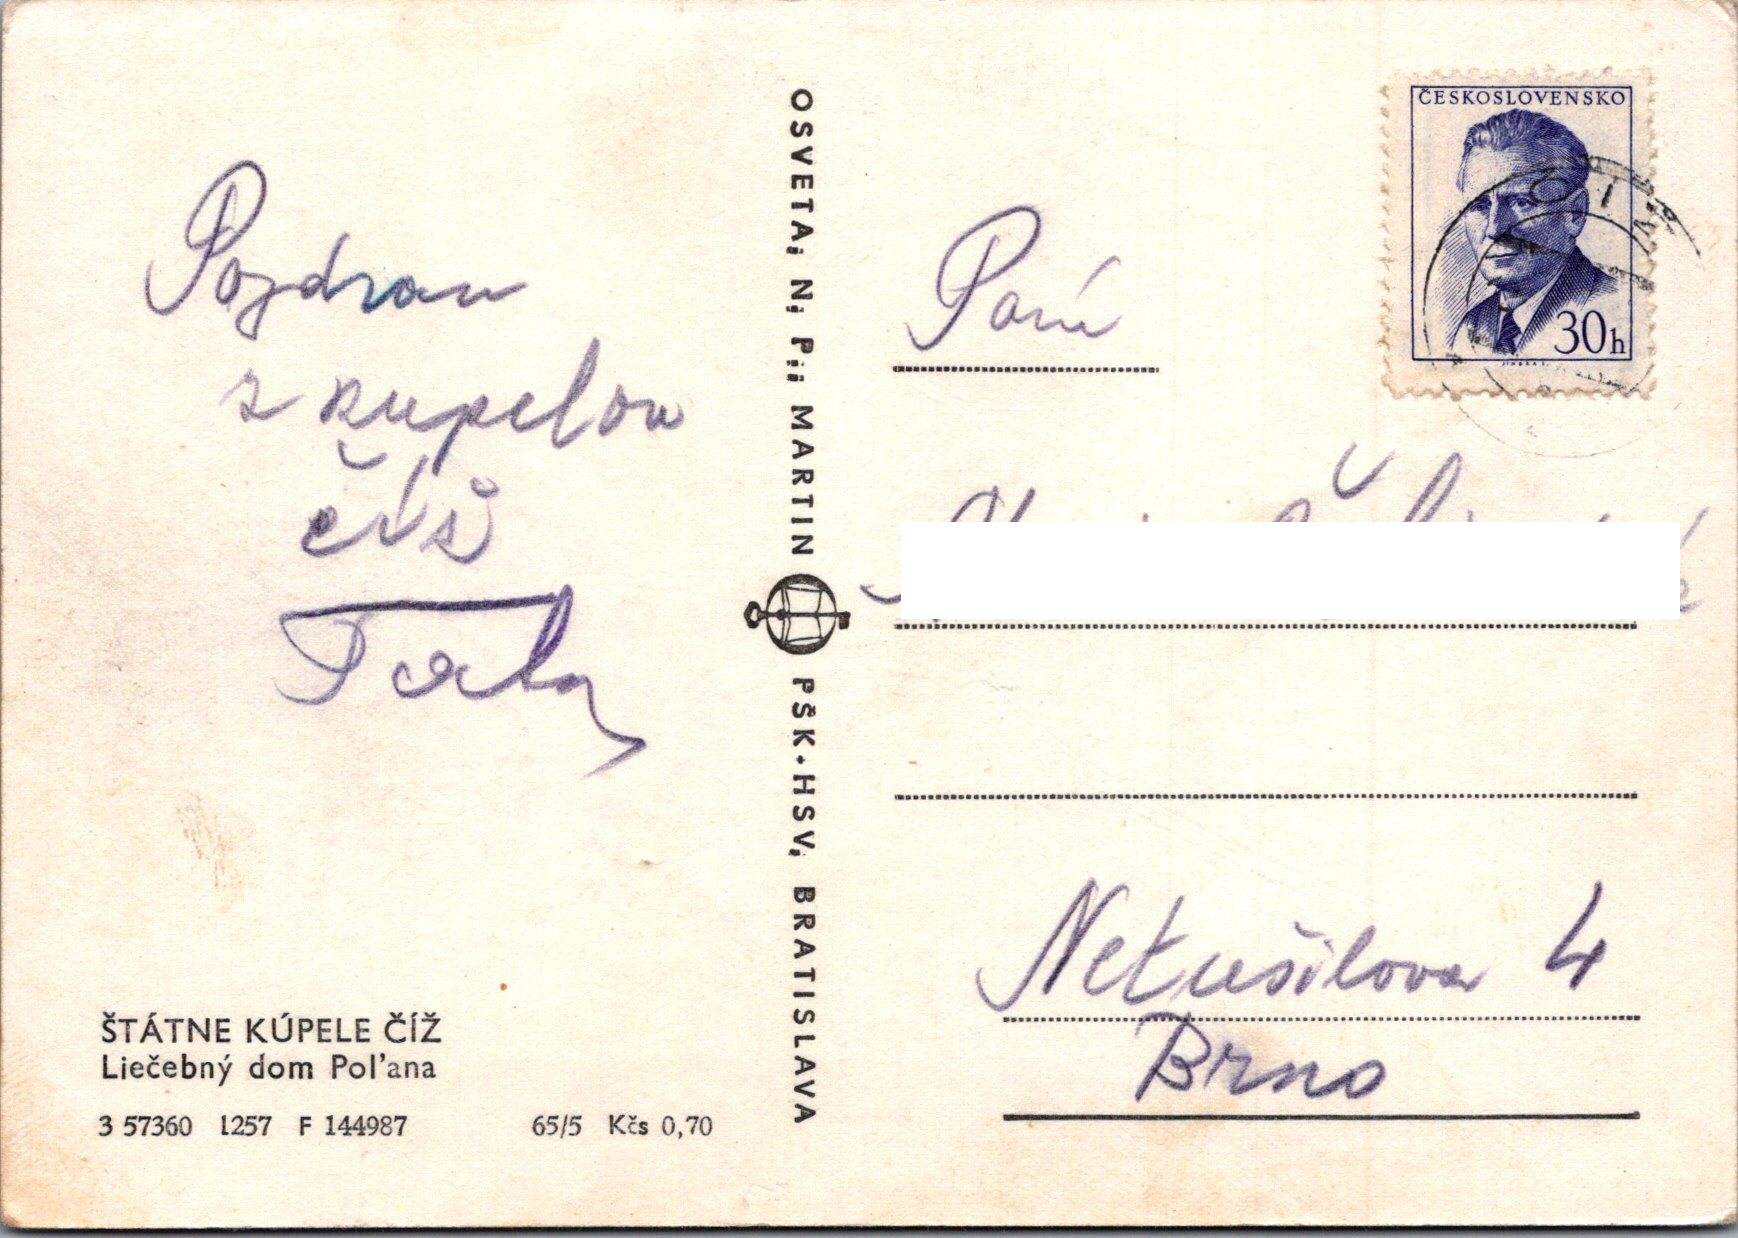 Pozdrav
z kupelov
číž
Tata
ŠTÁTNE KÚPELE ČÍŽ
Liečebný dom Poľana
3 57360 1257 F 144987 65/5 Kčs 0,70
OSVETA, N. P., MARTIN PŠK-HSV, BRATISLAVA
ČESKOSLOVENSKO
30h
JINDRA S.
ČÍŽ
Paní
Netušilova 4
Brno